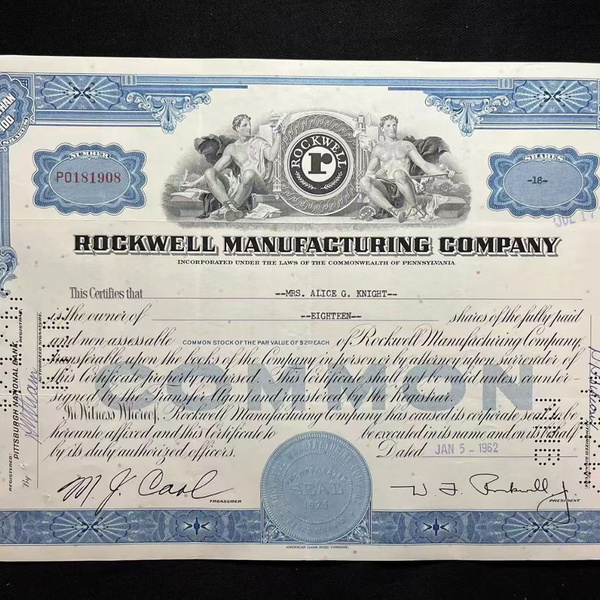 NUMBER
P0181908
ROCKWELL
r
SHARES
-18-
ROCKWELL MANUFACTURING COMPANY
INCORPORATED UNDER THE LAWS OF THE COMMONWEALTH OF PENNSYLVANIA
This Certifies that --MRS. ALICE G. KNIGHT--
is the owner of --EIGHTEEN-- shares of the fully paid
and non-assessable COMMON STOCK OF THE PAR VALUE OF $2.50 EACH of Rockwell Manufacturing Company
transferable upon the books of the Company in person or by attorney upon surrender of
this Certificate properly endorsed. This Certificate shall not be valid unless counter-
signed by the Transfer Agent and registered by the Registrar.
COMMON
In Witness Whereof, Rockwell Manufacturing Company has caused its corporate seal to be
hereunto affixed and this Certificate to be executed in its name and on its behalf
by its duly authorized officers. Dated JAN 5 - 1962
M. J. Caol
TREASURER
W F Rockwell Jr
PRESIDENT
SEAL
AMERICAN BANK NOTE COMPANY
REGISTERED:
PITTSBURGH NATIONAL BANK
REGISTRAR
By
AUTHORIZED SIGNATURE